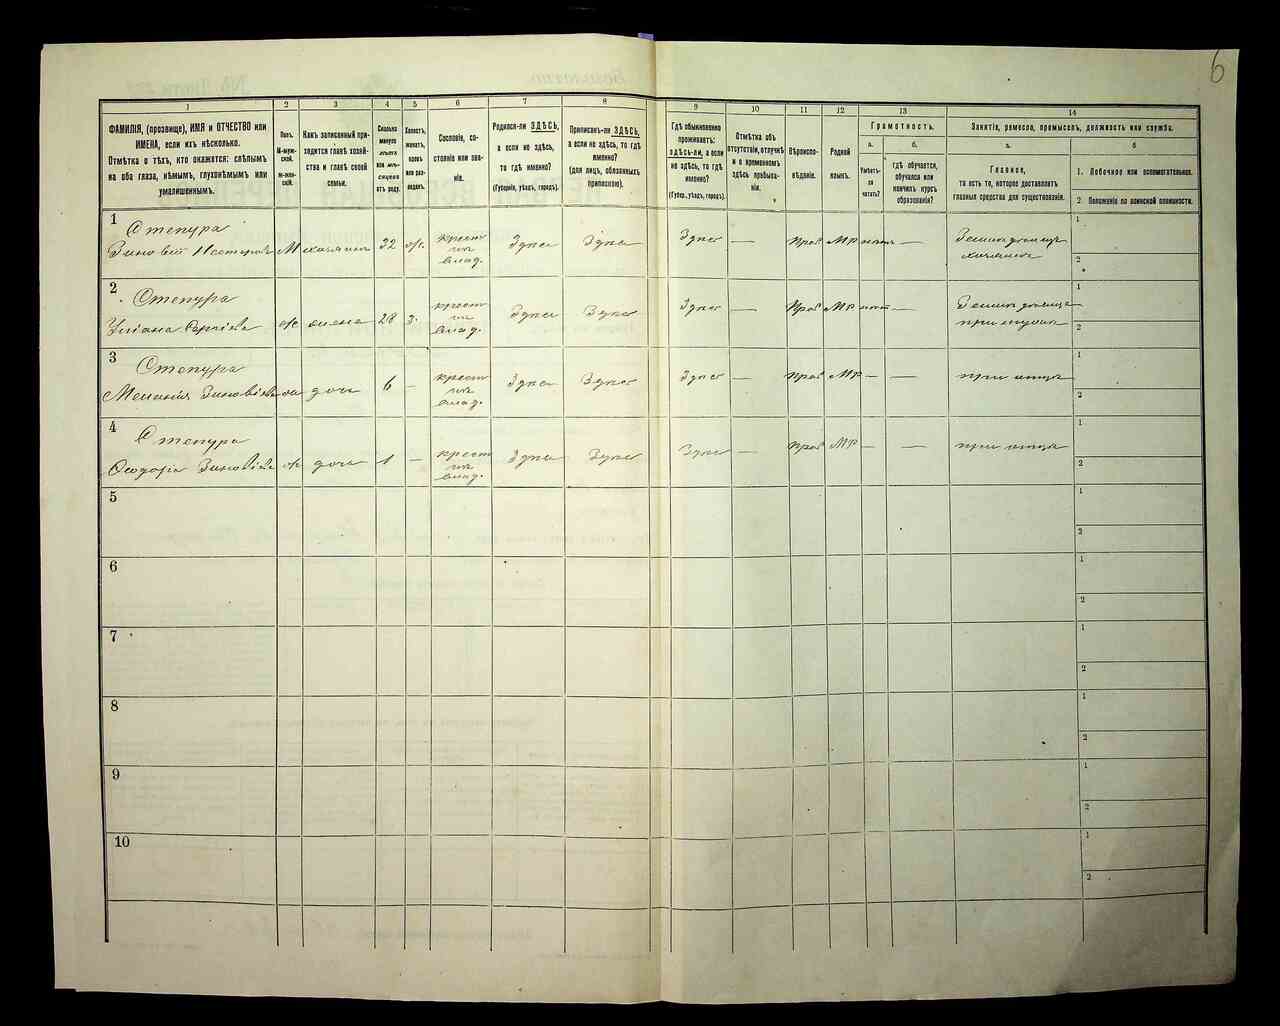 6
1
2
3
4
5
6
7
8
9
10
11
12
13
14
ФАМИЛІЯ, (прозвище), ИМЯ и ОТЧЕСТВО или
ИМЕНА, если ихъ нѣсколько.
Отмѣтка о тѣхъ, кто окажется: слѣпымъ
на оба глаза, нѣмымъ, глухонѣмымъ или
умалишеннымъ.
Полъ.
М-муж-
ской.
Ж-жен-
скій.
Какъ записанный при-
ходится главѣ хозяй-
ства и главѣ своей
семьи.
Сколько
минуло
лѣтъ
или мѣ-
сяцевъ
отъ роду.
Холостъ,
женатъ,
вдовъ
или раз-
веденъ.
Сословіе, со-
стояніе или зва-
ніе.
Родился-ли ЗДѢСЬ,
а если не здѣсь,
то гдѣ именно?
(Губернія, уѣздъ, городъ).
Приписанъ-ли ЗДѢСЬ,
а если не здѣсь, то гдѣ
именно?
(для лицъ, обязанныхъ
припискою).
Гдѣ обыкновенно
проживаетъ:
здѣсь-ли, а если
не здѣсь, то гдѣ
именно?
(Губер., уѣздъ, городъ).
Отмѣтка объ
отсутствіи, отлучкѣ
и о временномъ
здѣсь пребыва-
ніи.
Вѣроиспо-
вѣданіе.
Родной
языкъ.
Грамотность.
а.
Умѣетъ-
ли
читать?
б.
гдѣ обучается,
обучался или
кончилъ курсъ
образованія?
Занятіе, ремесло, промыселъ, должность или служба.
а.
Главное,
то есть то, которое доставляетъ
главныя средства для существованія.
б
1. Побочное или вспомогательное.
2 Положеніе по воинской повинности.
1
Степура
Зиновій Несторовъ М хозяинъ 32 ж. крест Здесь Здесь Здесь — Прав МР нетъ — Земледелецъ
владѣ. хозяинъ
1
2
2
Степура
Уліана ж жена 28 з. крест Здесь Здесь Здесь — Прав МР нетъ — Земледелица
владѣ. при мужѣ
1
2
3
Степура
Меланія Зиновіева ж дочь 6 — крест Здесь Здесь Здесь — Прав МР — — при отцѣ
владѣ.
1
2
4
Степура
Ѳеодосія Зиновіева ж дочь 1 — крест Здесь Здесь Здесь — Прав МР — — при отцѣ
владѣ.
1
2
5
1
2
6
1
2
7
1
2
8
1
2
9
1
2
10
1
2